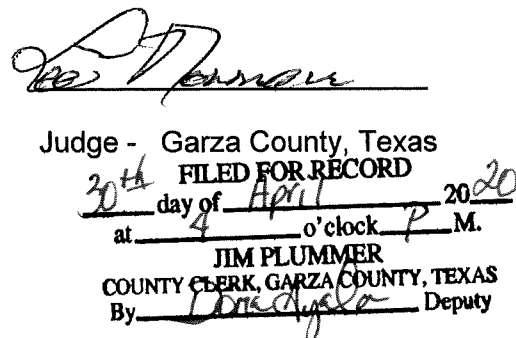 Lee Norman
Judge - Garza County, Texas
FILED FOR RECORD
30th day of April 2020
at 4 o'clock P M.
JIM PLUMMER
COUNTY CLERK, GARZA COUNTY, TEXAS
By Dora Ayala Deputy